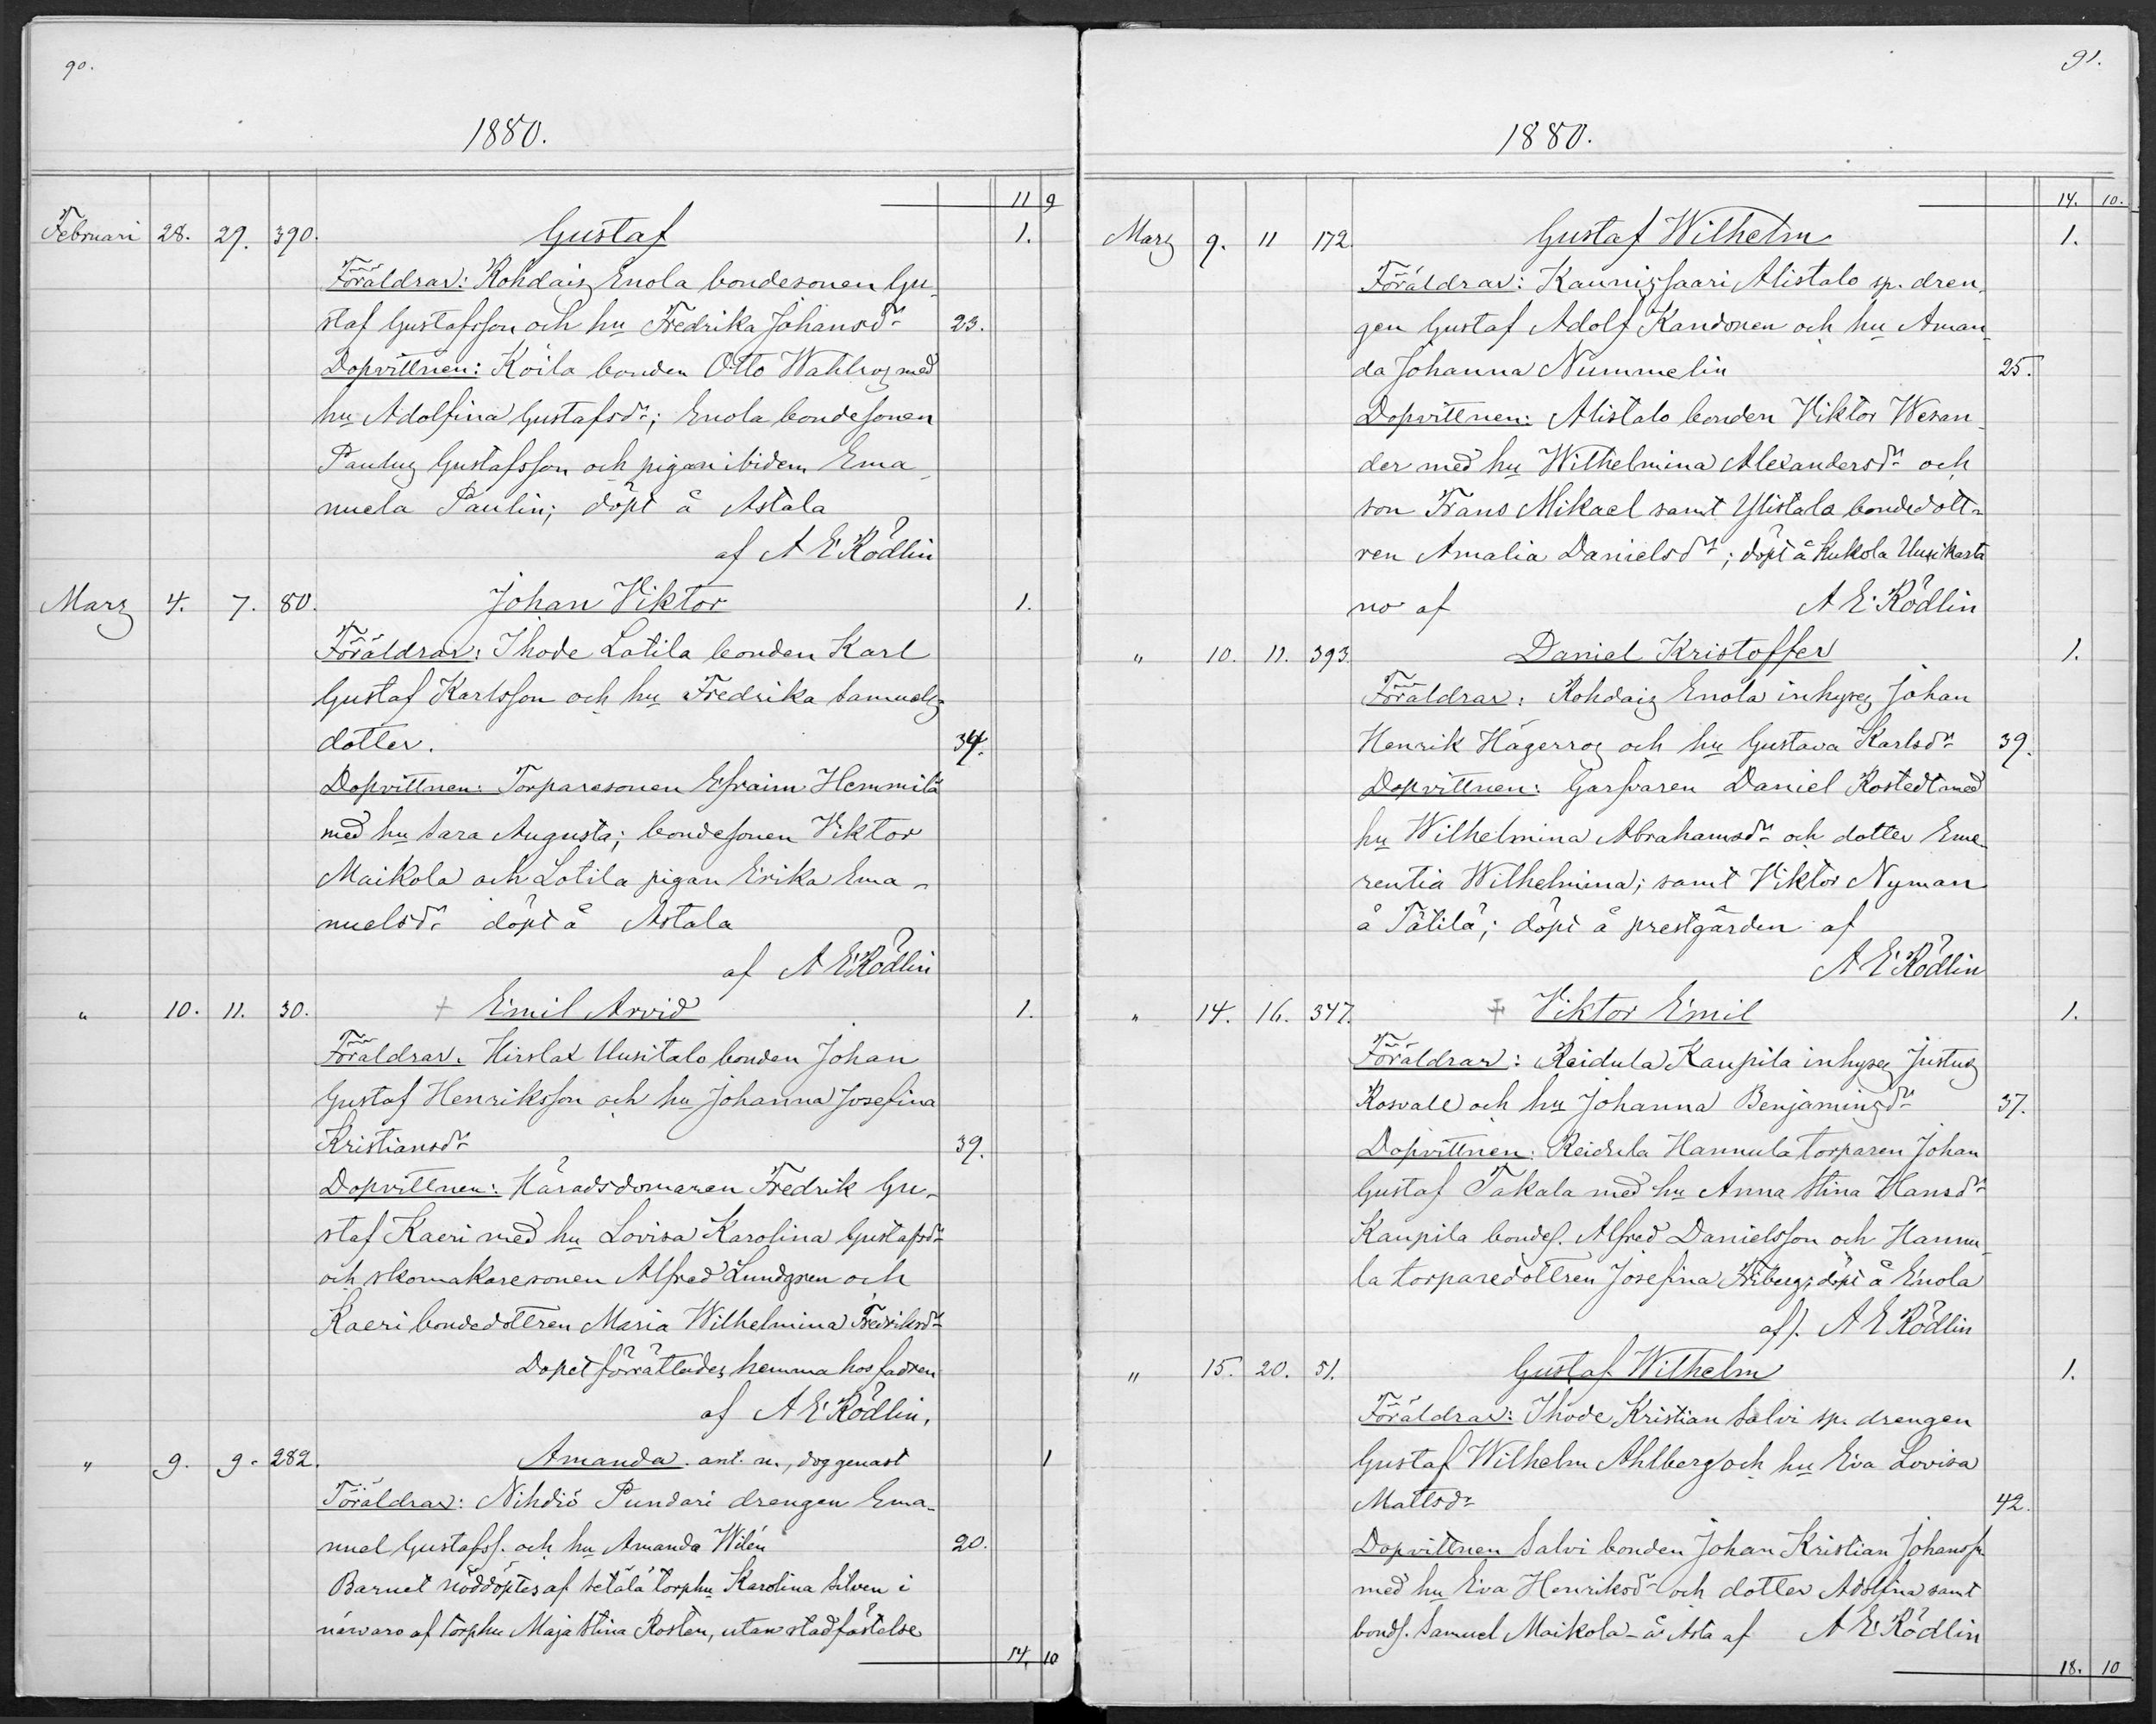 90.
1880.
11 9
Februari 28. 29. 390. Gustaf 1.
Föräldrar: Rohdais Enola bondesonen Gu-
staf Gustafsson och hu Fredrika Johansdr 23.
Dopvittnen: Koila bonden Otto Wahlros med
hu Adolfina Gustafsdr; Enola bondesonen
Paulus Gustafsson och pigan ibidem Ema-
nuela Paulin; döpt å Astala
af A E Rödlin
Mars 4. 7. 80. Johan Viktor 1.
Föräldrar: Ihode Latila bonden Karl
Gustaf Karlsson och hu Fredrika Samuels
dotter. 34.
Dopvittnen: Torparesonen Efraim Hemmilä
med hu Sara Augusta; bondesonen Viktor
Maikola och Lotila pigan Erika Ema-
nuelsdr döpt å Astala
af A E Rödlin
" 10. 11. 30. + Emil Arvid 1.
Föräldrar. Hirslax Uusitalo bonden Johan
Gustaf Henriksson och hu Johanna Josefina
Kristiansdr 39.
Dopvittnen: Häradsdomaren Fredrik Gu-
staf Kaeri med hu Lovisa Karolina Gustafsdr
och skomakaresonen Alfred Lundgren och
Kaeri bondedottren Maria Wilhelmina Fredriksdr
Dopet förrättades hemma hos fadren
af A E Rödlin,
" 9. 9. 282. Amanda. ant. n., dog genast 1
Föräldrar: Nihdiö Pundari drengen Ema-
nuel Gustafss. och hu Amanda Wilén 20.
Barnet nöddöptes af Setälä torphu Karolina Silven i
närvaro af torphu Maja Stina Rosten, utan stadfästelse
14. 10
91.
1880.
14. 10.
Mars 9. 11 172. Gustaf Wilhelm 1.
Föräldrar: Kaunissaari Alistalo sp. dren-
gen Gustaf Adolf Kandonen och hu Aman-
da Johanna Nummelin 25.
Dopvittnen: Alistalo bonden Viktor Wesan-
der med hu Wilhelmina Alexandersdr och
son Frans Mikael samt Ylistalo bondedott-
ren Amalia Danielsdr; döpt å Kukola Uusikarta
no af A E Rödlin
" 10. 11. 393. Daniel Kristoffer 1.
Föräldrar: Rohdais Enola inhyses Johan
Henrik Hägerros och hu Gustava Karlsdr 39.
Dopvittnen: Garfvaren Daniel Rostedt med
hu Wilhelmina Abrahamsdr och dotter Eme-
rentia Wilhelmina; samt Viktor Nyman
å Tätilä; döpt å prestgården af
A E Rödlin
" 14. 16. 347. + Viktor Emil 1.
Föräldrar: Reidula Kaupila inhyses Justus
Rosvall och hu Johanna Benjaminsdr 37.
Dopvittnen: Reidula Hannula torparen Johan
Gustaf Takala med hu Anna Stina Hansdr
Kaupila bondes. Alfred Danielsson och Hannu-
la torparedottren Josefina Friberg; döpt å Enola
af. A E Rödlin
" 15. 20. 51. Gustaf Wilhelm 1.
Föräldrar: Ihode Kristian Salvi sp. drengen
Gustaf Wilhelm Ahlberg och hu Eva Lovisa
Mattsdr 42.
Dopvittnen Salvi bonden Johan Kristian Johanss.
med hu Eva Henriksdr och dotter Adolfina samt
bonds. Samuel Maikola - å Asta af A E Rödlin
18. 10